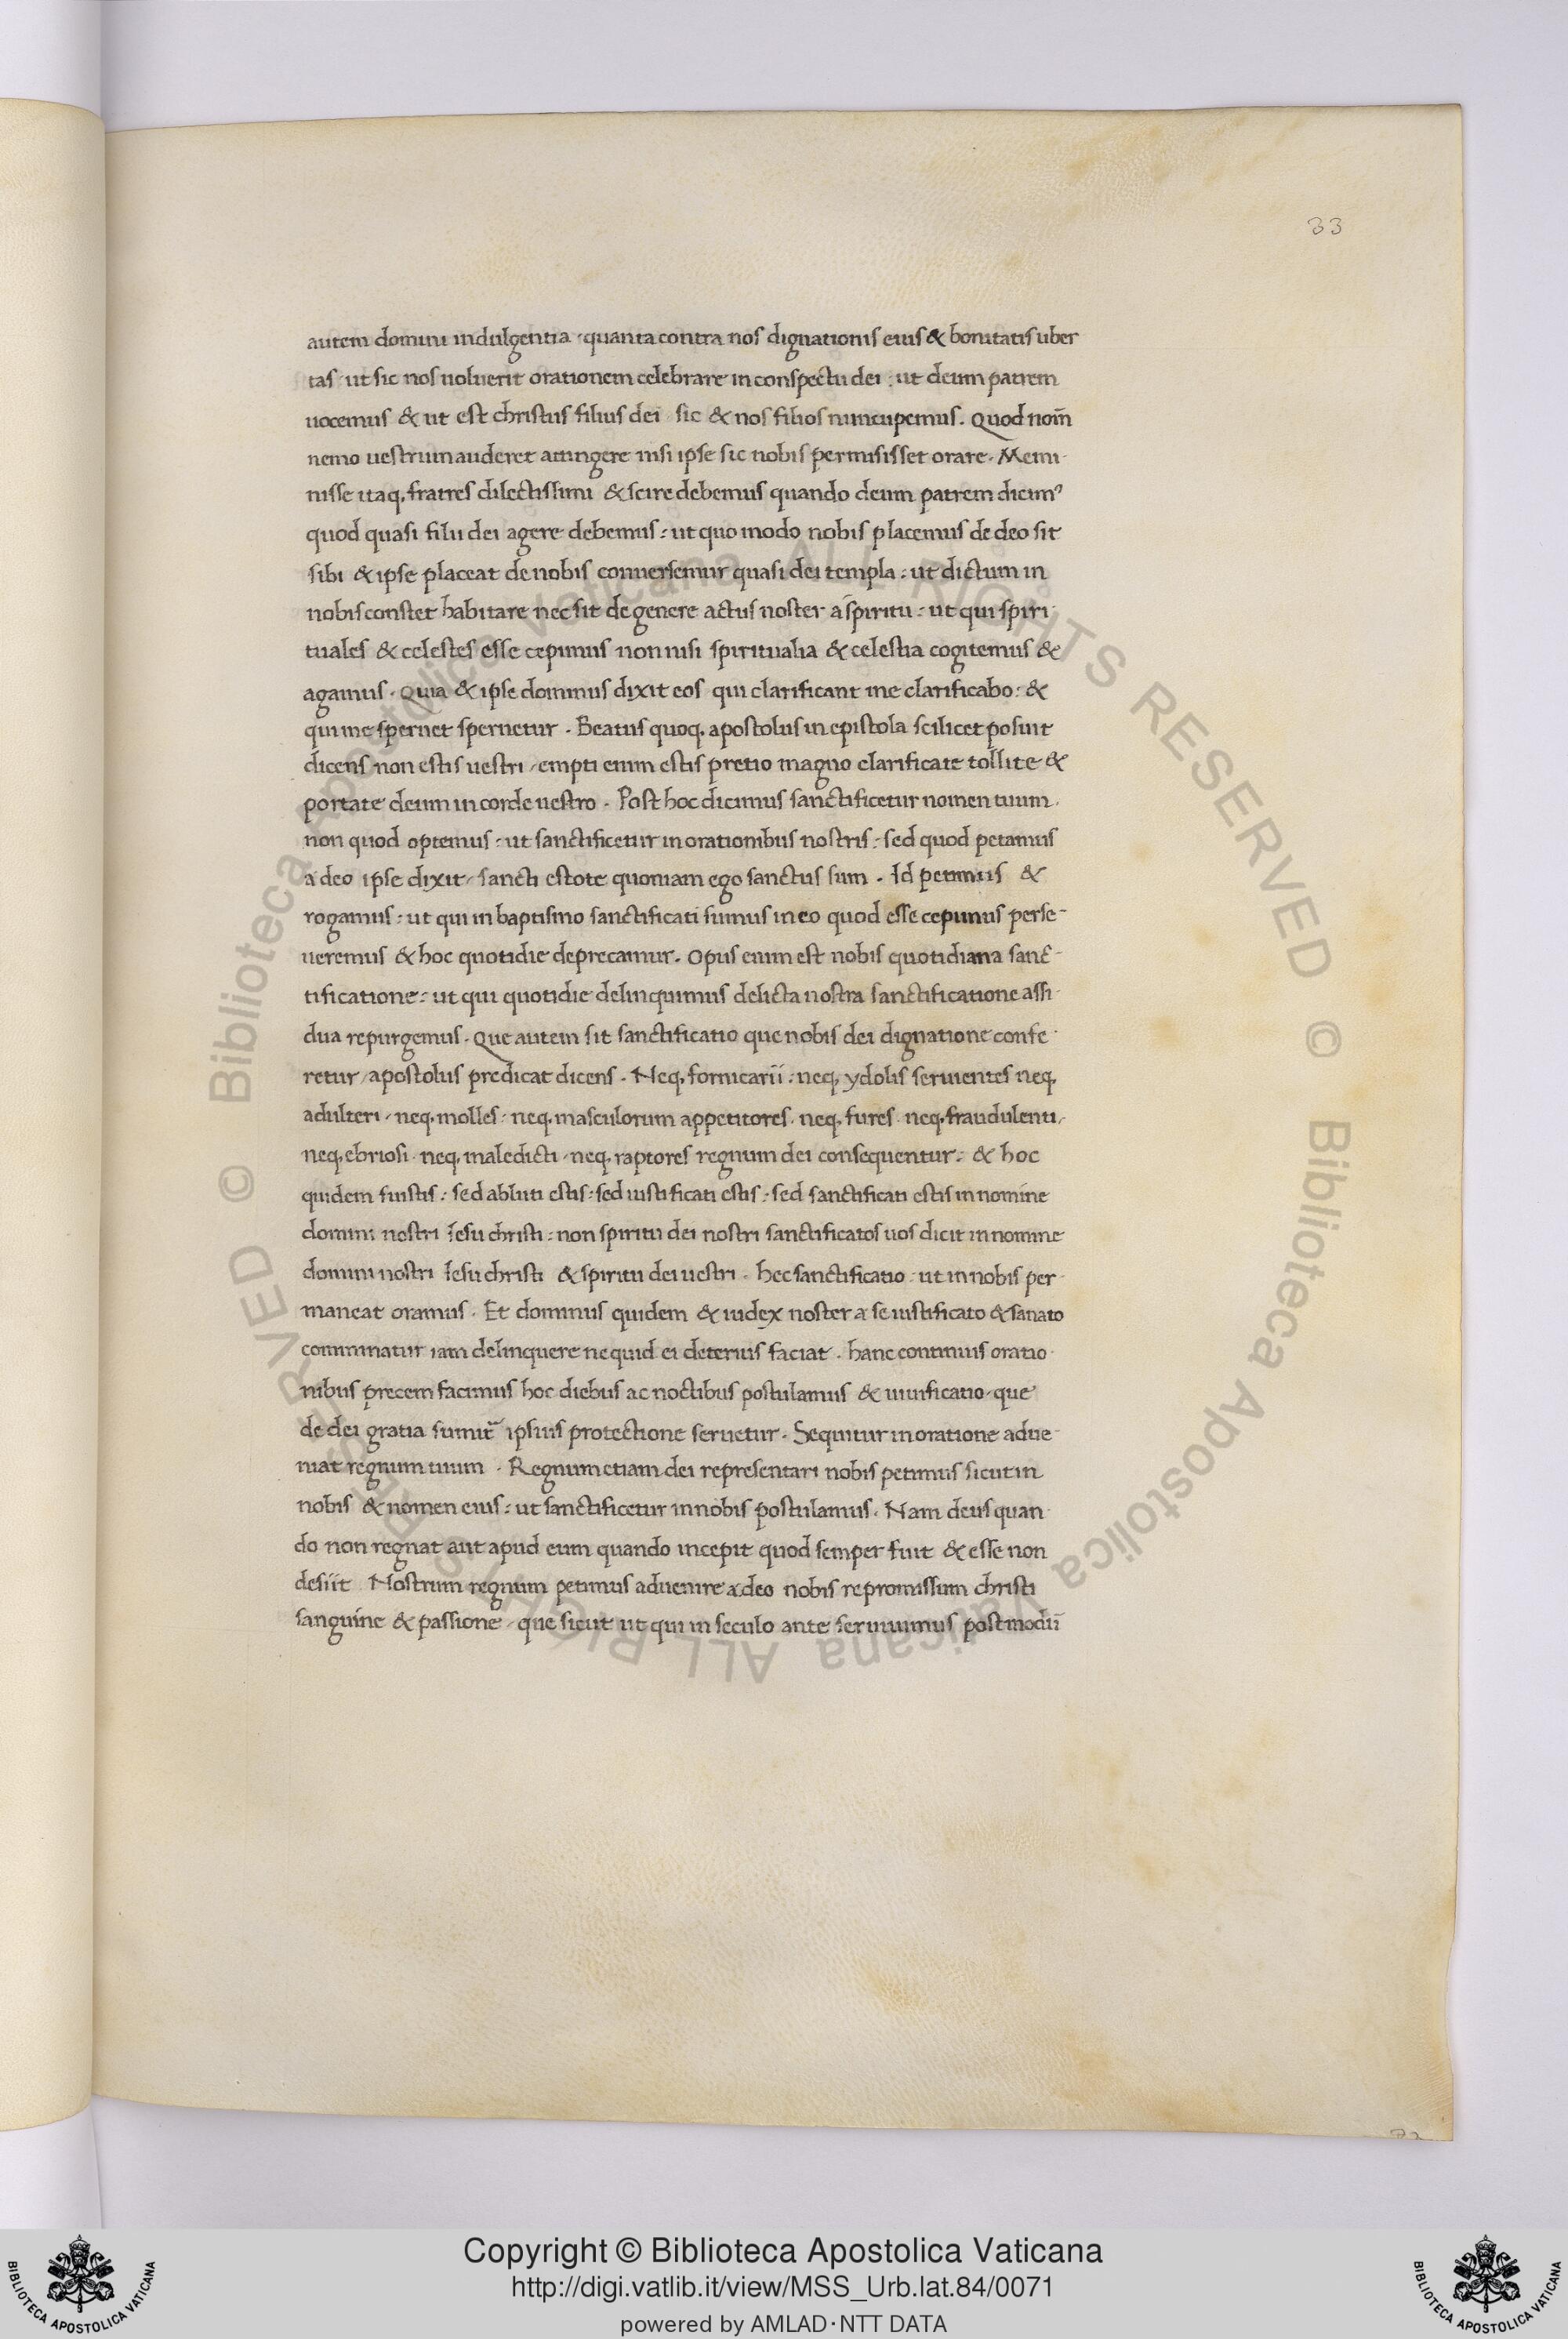 33
autem domini indulgentia · quanta contra nos dignationis eius & bonitatis uber
tas : ut sic nos uoluerit orationem celebrare in conspectu dei : ut deum patrem
uocemus & ut est christus filius dei sic & nos filios nuncupemus. Quod nom̄
nemo uestrum auderet attingere nisi ipse sic nobis permisisset orare. Memi-
nisse itaq, fratres dilectissimi & scire debemus quando deum patrem dicimꝰ
quod quasi filii dei agere debemus : ut quo modo nobis placemus de deo sit
sibi & ipse placeat de nobis conuersemur quasi dei templa : ut dictum in
nobis constet habitare nec sit degenere actus noster a spiritu : ut qui spiri
tuales & celestes esse cepimus non nisi spiritualia & celestia cogitemus &
agamus. Quia & ipse dominus dixit eos qui clarificant me clarificabo : &
qui me spernet spernetur. Beatus quoq, apostolus in epistola scilicet posuit
dicens non estis uestri / empti enim estis pretio magno clarificate tollite &
portate deum in corde uestro. Post hoc dicimus sanctificetur nomen tuum.
non quod optemus : ut sanctificetur in orationibus nostris : sed quod petamus
a deo ipse dixit / sancti estote quoniam ego sanctus sum. Id petimus &
rogamus : ut qui in baptismo sanctificati sumus in eo quod esse cepimus perse-
ueremus & hoc quotidie deprecamur. Opus enim est nobis quotidiana sanc-
tificatione : ut qui quotidie delinquimus delicta nostra sanctificatione assi-
dua repurgemus. Que autem sit sanctificatio que nobis dei dignatione confe-
retur / apostolus predicat dicens. Neq, fornicarii : neq, ydolis seruientes neq,
adulteri / neq, molles : neq, masculorum appetitores. neq, fures. neq, fraudulenti /
neq, ebriosi. neq, maledicti / neq, raptores regnum dei consequentur : & hoc
quidem fuistis : sed abluti estis : sed iustificati estis : sed sanctificati estis in nomine
domini nostri Iesu christi : non spiritu dei nostri sanctificatos uos dicit in nomine
domini nostri Iesu christi & spiritu dei uestri. hec sanctificatio : ut in nobis per-
maneat oramus. Et dominus quidem & iudex noster a se iustificato & sanato
comminatur iam delinquere ne quid ei deterius faciat. hanc continuis oratio-
nibus precem facimus hoc diebus ac noctibus postulamus & uiuificatio / que
de dei gratia sumit̄ ipsius protectione seruetur. Sequitur in oratione adue-
niat regnum tuum. Regnum etiam dei representari nobis petimus sicut in
nobis & nomen eius : ut sanctificetur in nobis postulamus. Nam deus quan-
do non regnat aut apud eum quando incepit quod semper fuit & esse non
desiit. Nostrum regnum petimus aduenire a deo nobis repromissum christi
sanguine & passione / que sicut ut qui in seculo ante seruiuimus postmodū
© Biblioteca Apostolica Vaticana ALL RIGHTS RESERVED © Biblioteca Apostolica Vaticana ALL RIGHTS RESERVED
Copyright © Biblioteca Apostolica Vaticana
http://digi.vatlib.it/view/MSS_Urb.lat.84/0071
powered by AMLAD·NTT DATA
BIBLIOTECA APOSTOLICA VATICANA
BIBLIOTECA APOSTOLICA VATICANA